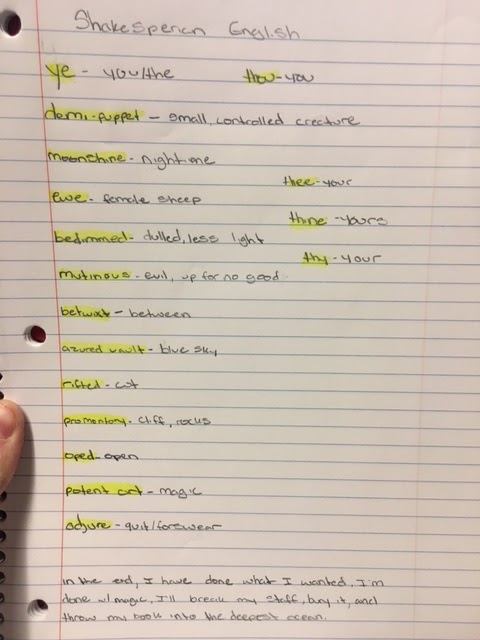 Shakesperian English
ye - you/the thou-you
demi-puppet - small, controlled creature
moonshine - nightime
thee-your
ewe - female sheep
thine - yours
bedimmed - dulled, less light
thy - your
mutinous - evil, up for no good
betwixt - between
azured vault - blue sky
rifted - cut
promontory - cliff, rocks
oped - open
potent art - magic
adjure - quit/forswear
in the end, I have done what I wanted, I'm
done w/magic, I'll break my staff, bury it, and
throw my book into the deepest ocean.